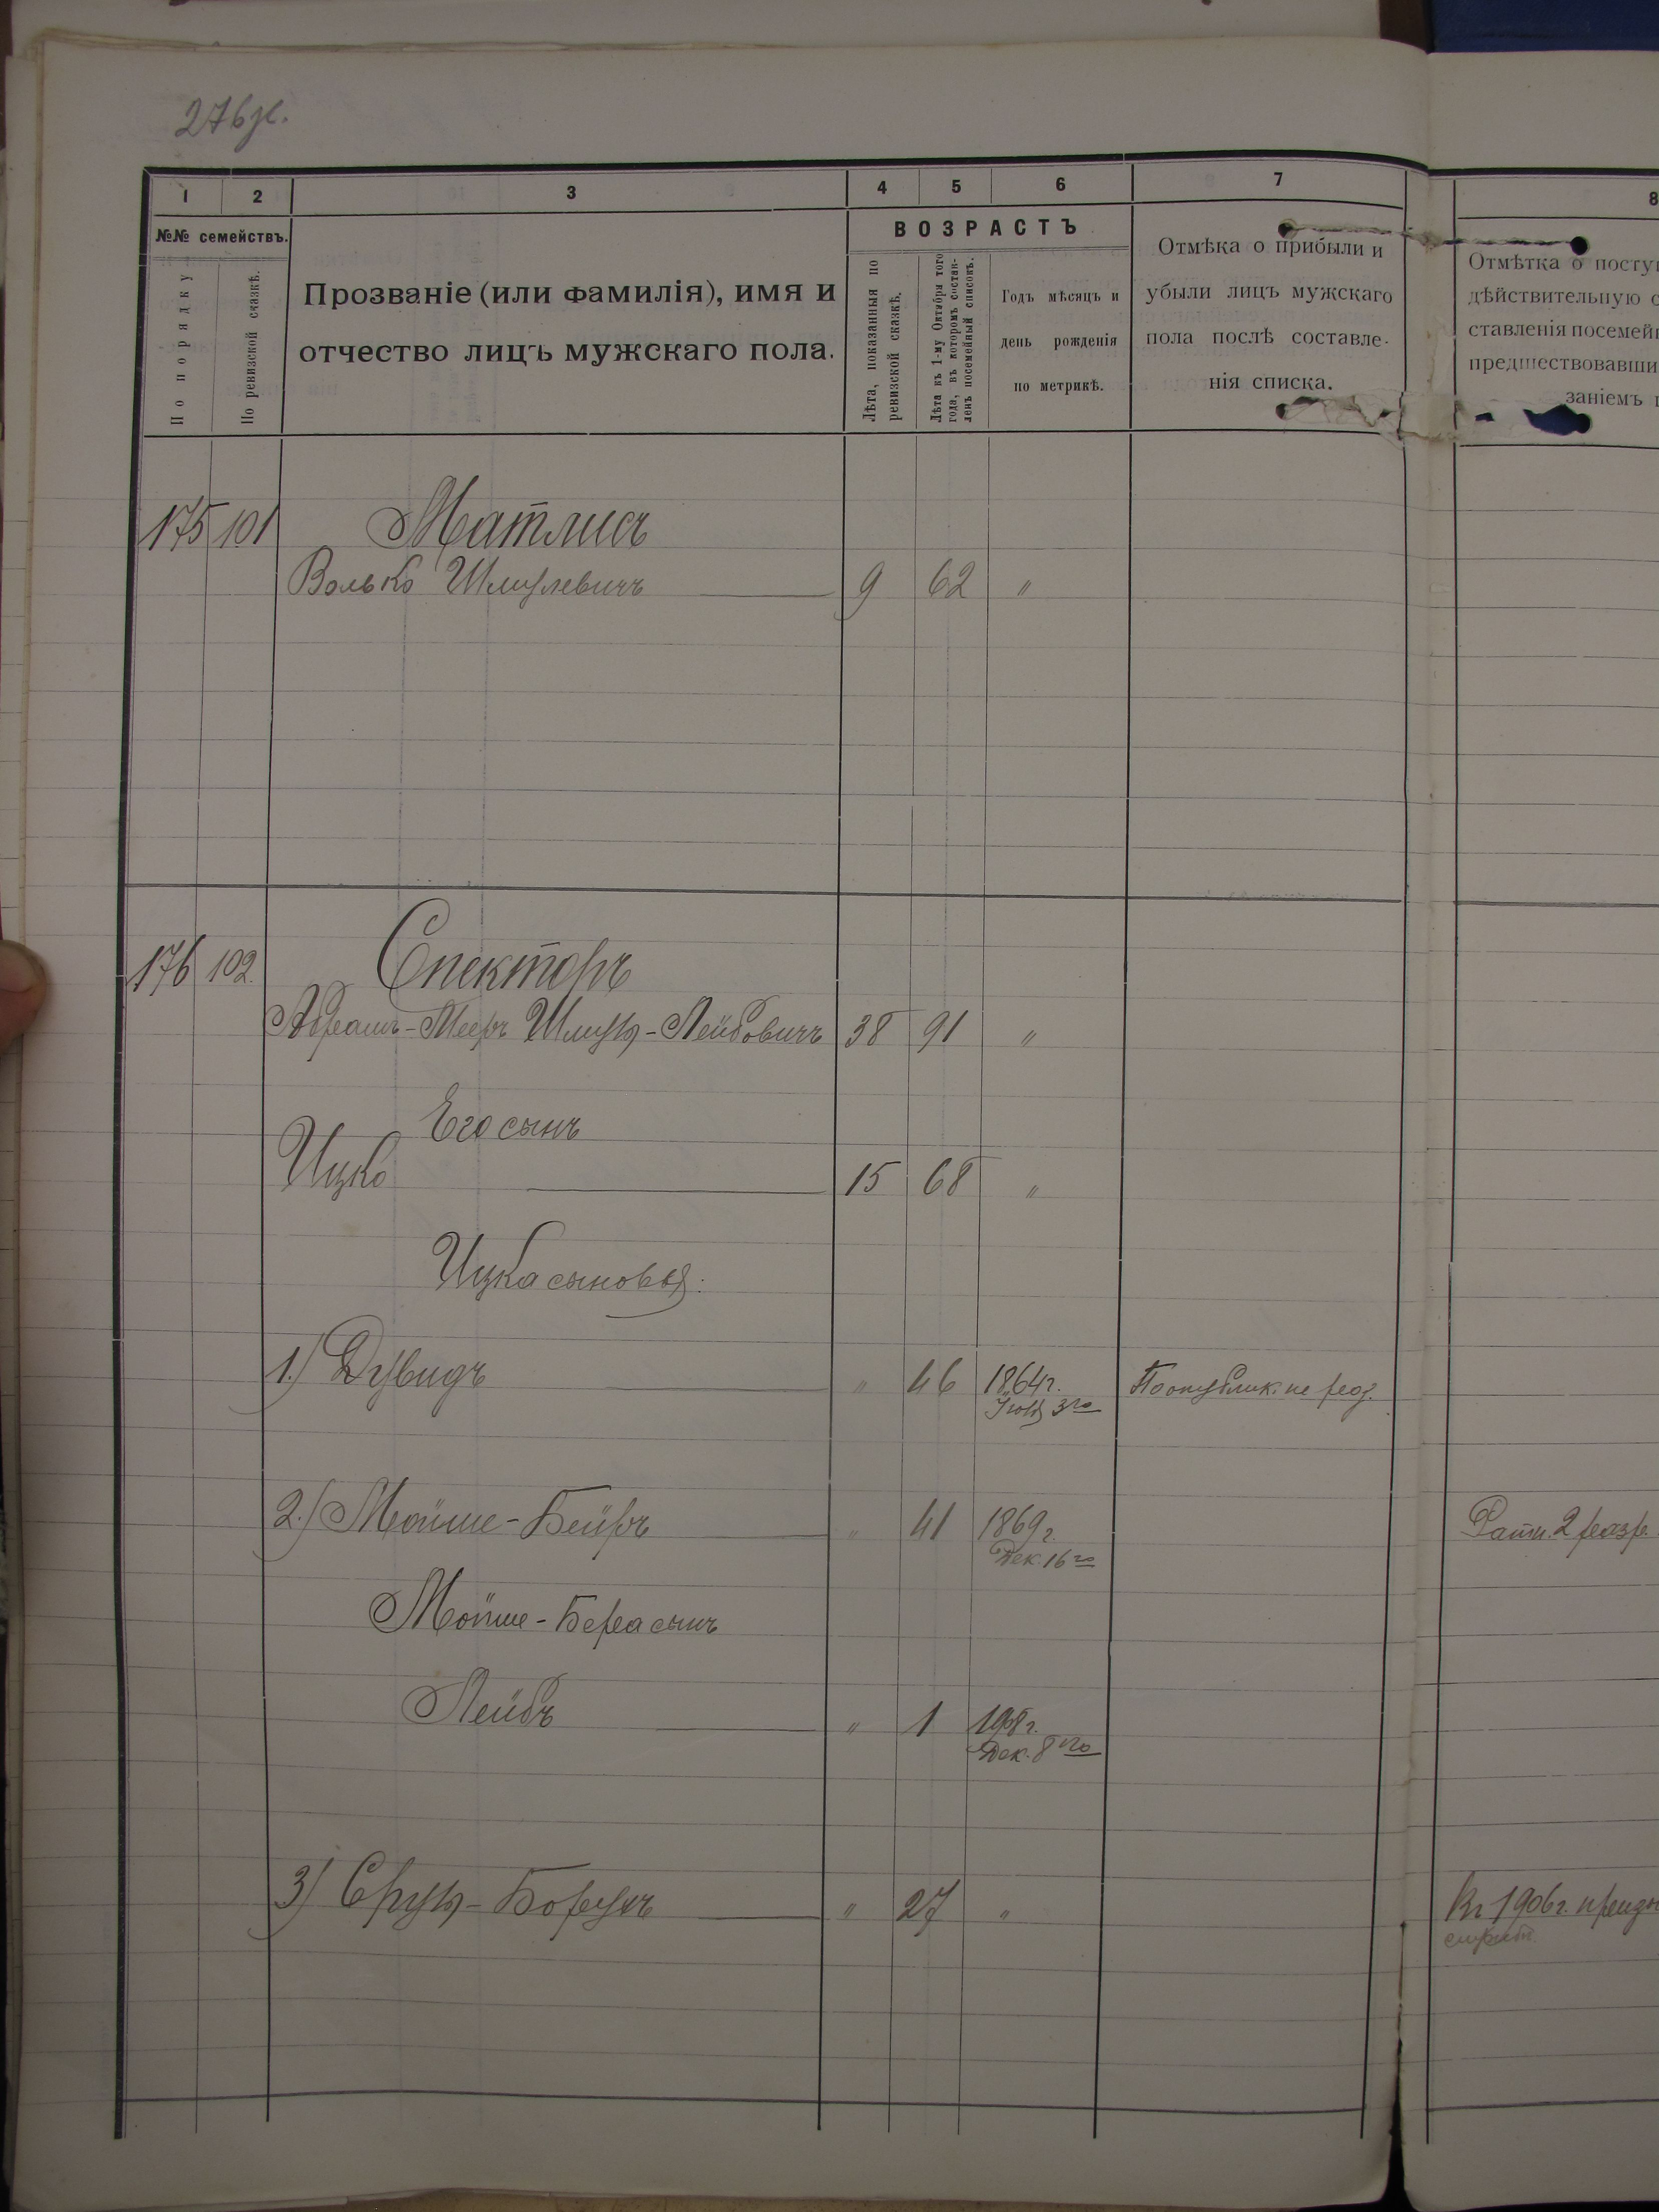 276
1 2 3 4 5 6 7 8
№№ семействъ.
По порядку
По ревизской сказкѣ.
Прозваніе (или фамилія), имя и
отчество лицъ мужскаго пола.
ВОЗРАСТЪ
Лѣта, показанныя по
ревизской сказкѣ.
Лѣта къ 1-му Октября того
года, въ которомъ состав-
ленъ посемейный списокъ.
Годъ мѣсяцъ и
день рожденія
по метрикѣ.
Отмѣка о прибыли и
убыли лицъ мужскаго
пола послѣ составле-
нія списка.
Отмѣтка о посту
дѣйствительную с
ставленія посемей
предшествовавши
заніемъ
175 101 Матлисъ
Волько Шмулевичъ 9 62 "
176 102. Спекторъ
Абрамъ-Мееръ Шмуль-Лейбовичъ 38 91 "
Его сынъ
Ицко 15 68 "
Ицка сыновья:
1.) Дувидъ " 46 1864г. По опублик. не роз.
Іюля 3го
2.) Мойше-Бейръ " 41 1869г. Ратн. 2 разр.
Дек. 16го
Мойше-Бера сынъ
Лейбъ " 1 1908г.
Дек. 8го
3) Сруль-Борухъ " 27 " Въ 1906г. призн